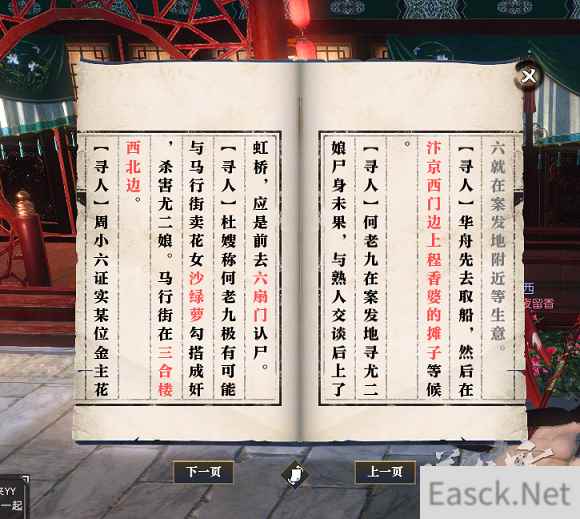 六就在案发地附近等生意。
【寻人】华舟先去取船，然后在
汴京西门边上程香婆的摊子等候
。
【寻人】何老九在案发地寻尤二
娘尸身未果，与熟人交谈后上了
虹桥，应是前去六扇门认尸。
【寻人】杜嫂称何老九极有可能
与马行街卖花女沙绿萝勾搭成奸
，杀害尤二娘。马行街在三合楼
西北边。
【寻人】周小六证实某位金主花
下一页
上一页
西
夜留香
YY
一起
Easck.Net